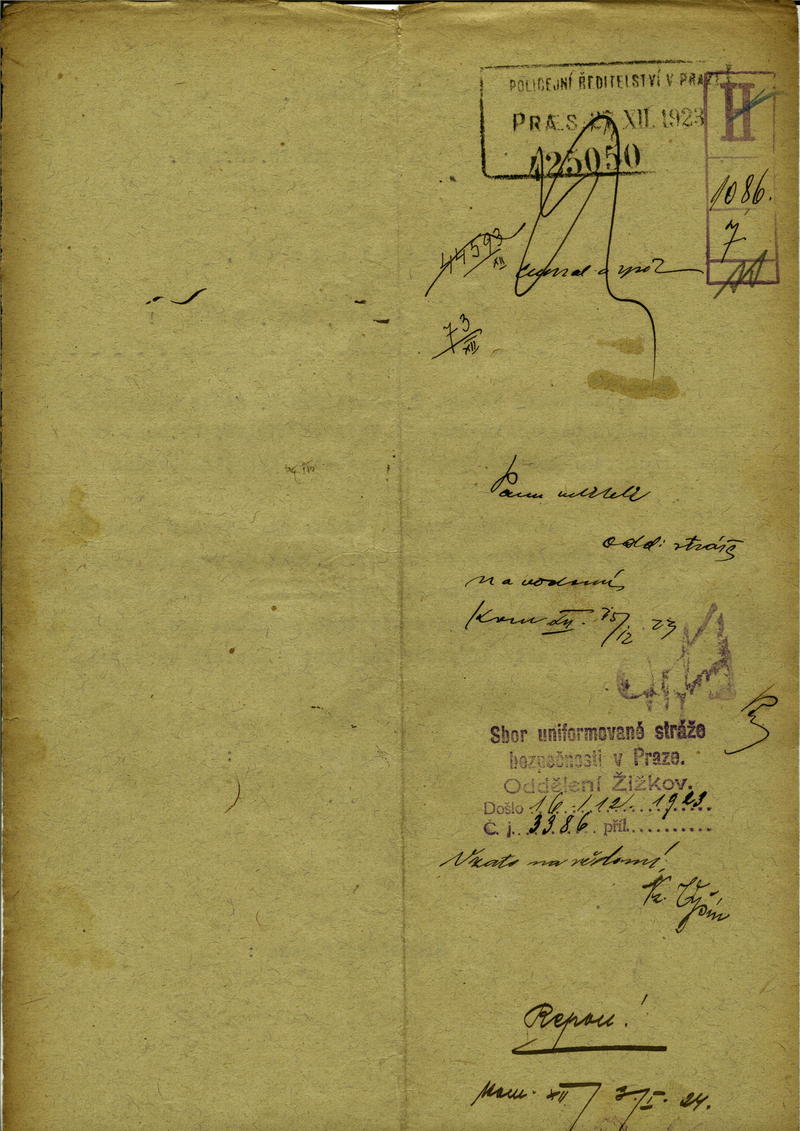 POLICEJNÍ ŘEDITELSTVÍ V PRAZE
PRÆS. XII. 1923
425050
H
1086.
7
44593
XII
73
XII
Panu veliteli
odd: stráže
na vědomí
Kom XII. 15/12 23
Sbor uniformované stráže
bezpečnosti v Praze.
Oddělení Žižkov.
Došlo 16./12. 1923
Č. j. 3386 příl.
Vzato na vědomí!
Repon!
Kom. XII 3/I. 24.